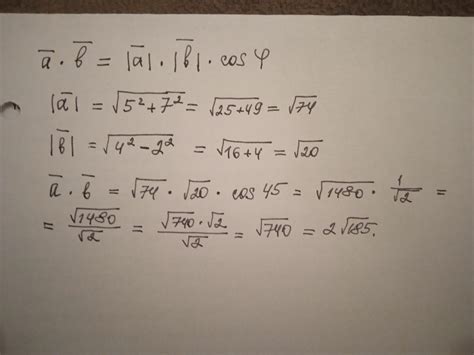 a̅ · b̅ = |a̅| · |b̅| · cos φ
|a̅| = √(5² + 7²) = √(25 + 49) = √74
|b̅| = √(4² − 2²) = √(16 + 4) = √20
a̅ · b̅ = √74 · √20 · cos 45 = √1480 · 1/√2 =
= √1480/√2 = √740 · √2/√2 = √740 = 2√185.